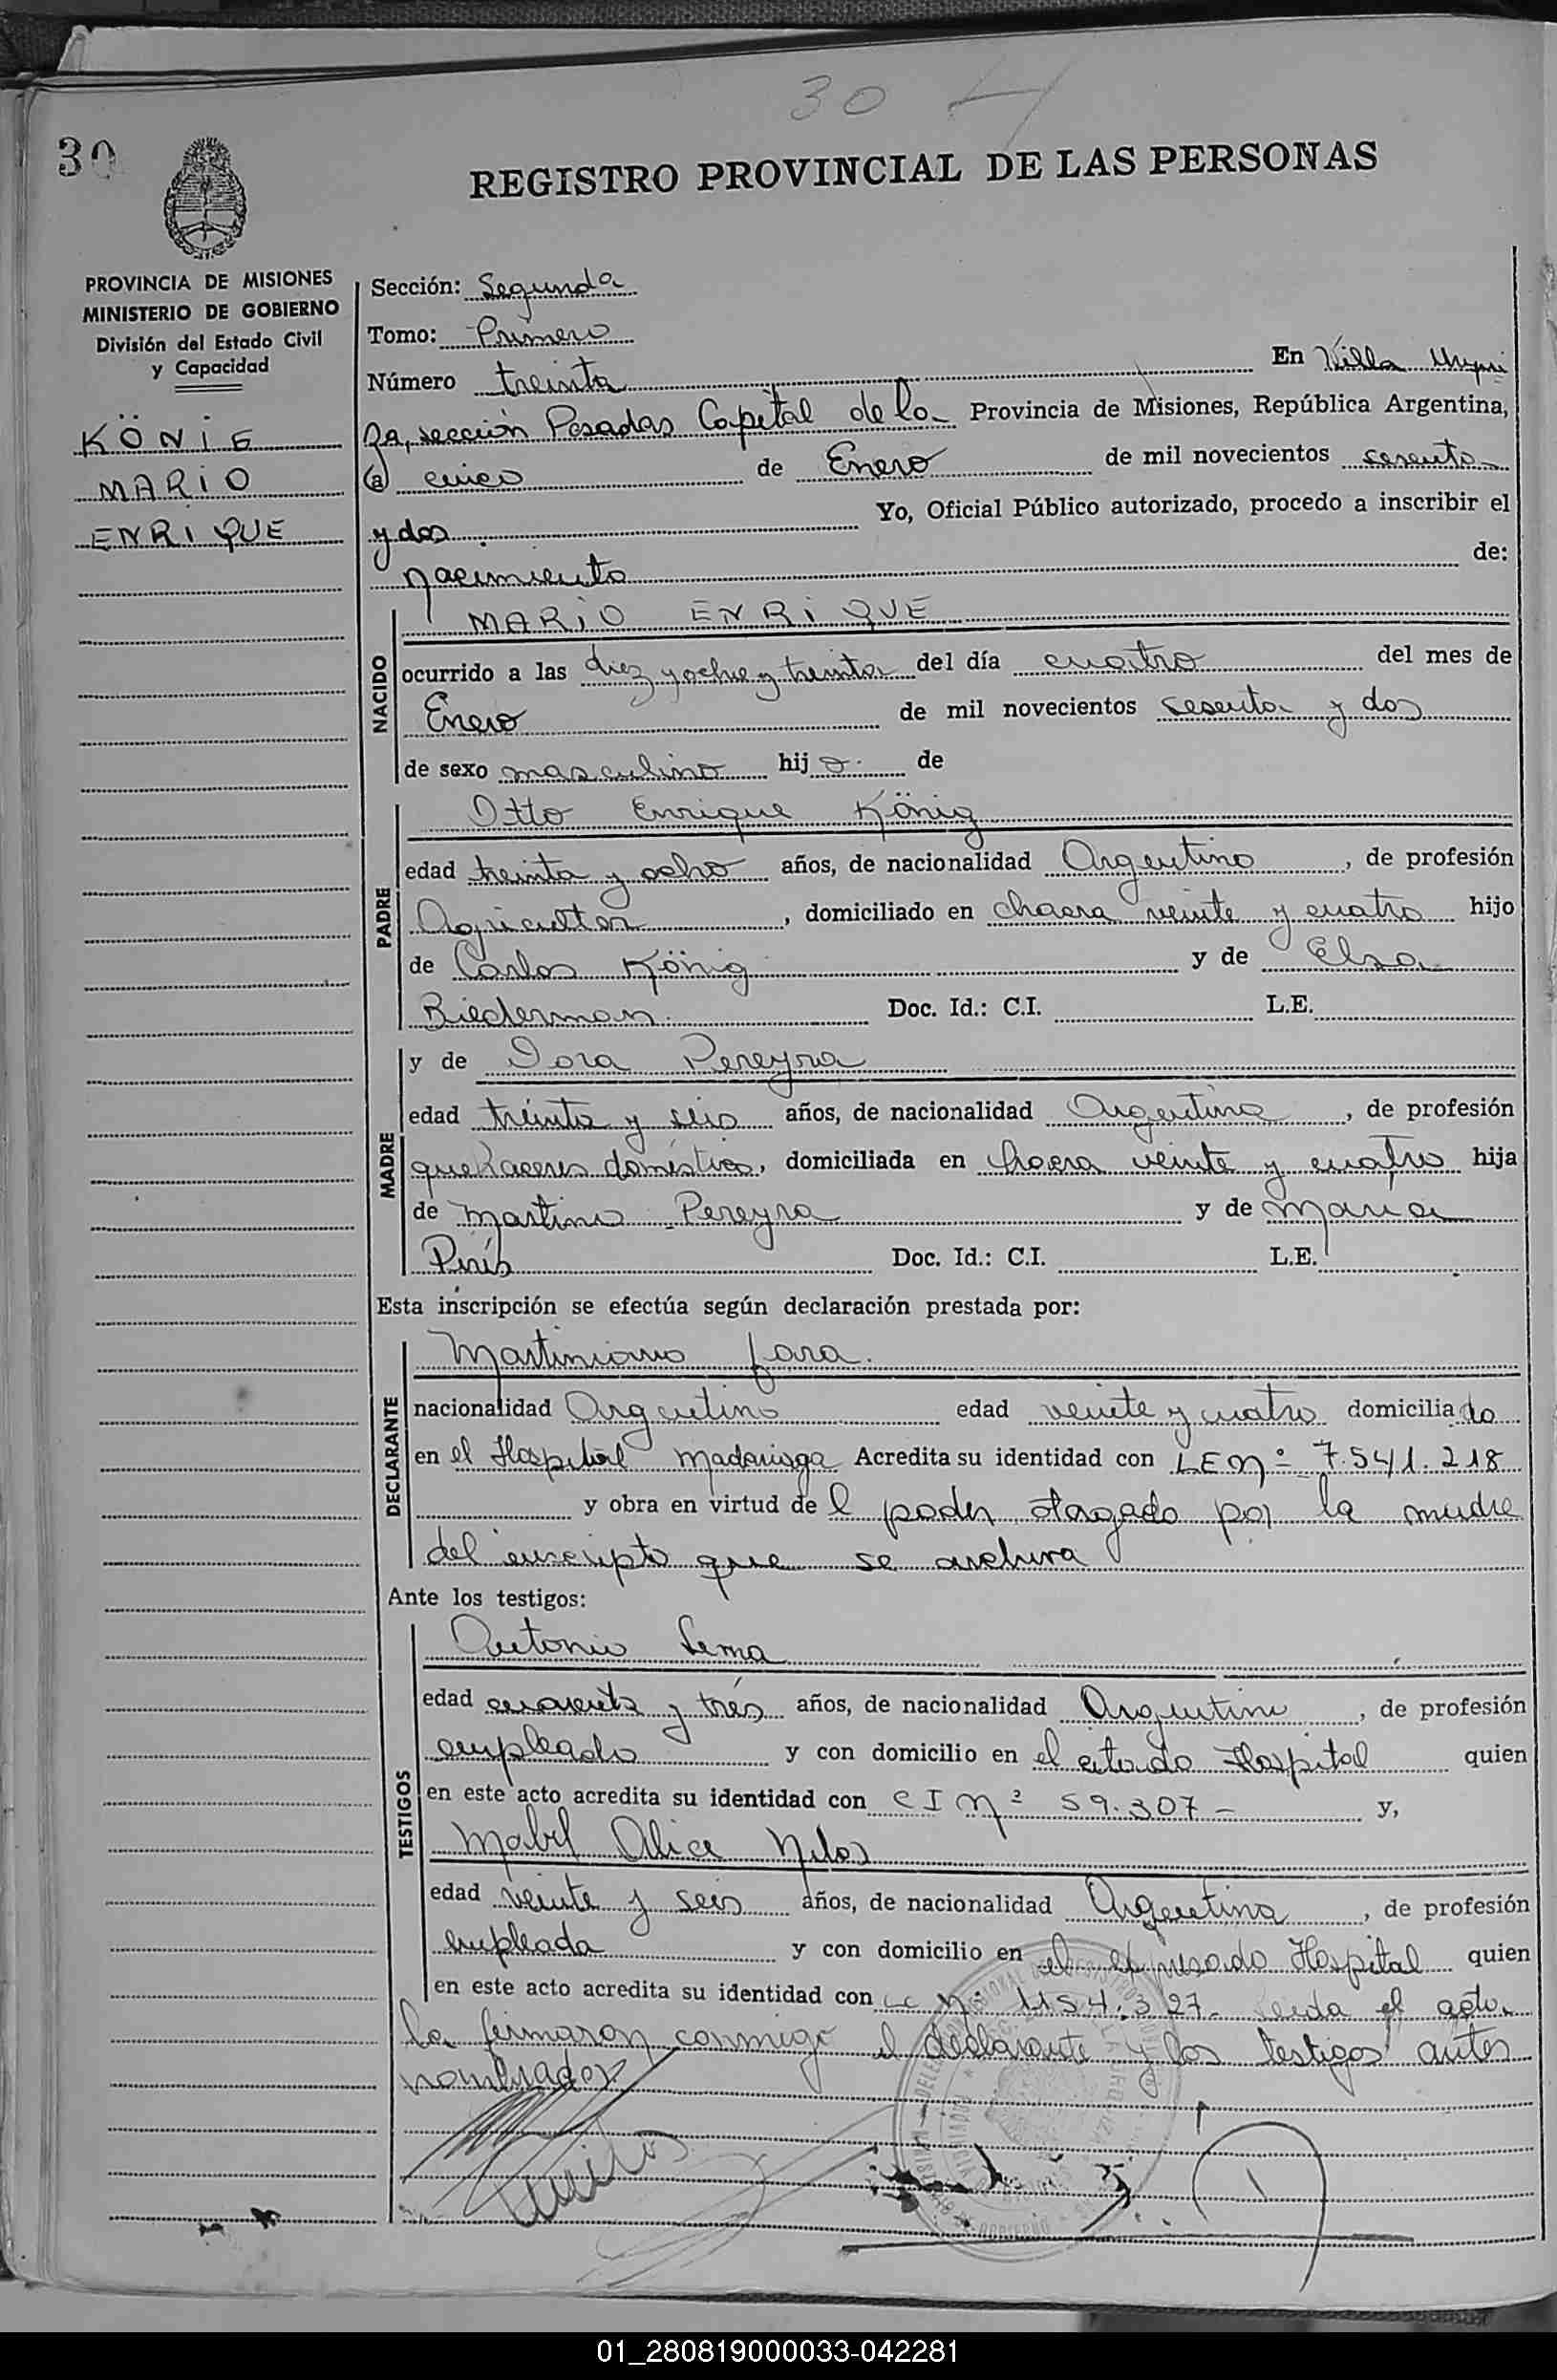 30
30
REGISTRO PROVINCIAL DE LAS PERSONAS
PROVINCIA DE MISIONES
MINISTERIO DE GOBIERNO
División del Estado Civil
y Capacidad
KÖNIG
MARIO
ENRIQUE
Sección: Segunda
Tomo: Primero
Número treinta En Villa Urqui
za, sección Posadas Capital de la Provincia de Misiones, República Argentina,
a cinco de Enero de mil novecientos sesenta
y dos Yo, Oficial Público autorizado, procedo a inscribir el
nacimiento de:
NACIDO
MARIO ENRIQUE
ocurrido a las diez y ocho y treinta del día cuatro del mes de
Enero de mil novecientos sesenta y dos
de sexo masculino hijo de
PADRE
Otto Enrique König
edad treinta y ocho años, de nacionalidad Argentino, de profesión
Agricultor, domiciliado en chacra veinte y cuatro hijo
de Carlos König y de Elsa
Biederman Doc. Id.: C.I. L.E.
MADRE
y de Dora Pereyra
edad treinta y seis años, de nacionalidad Argentina, de profesión
quehaceres domésticos, domiciliada en chacra veinte y cuatro hija
de Martino Pereyra y de Maria
Piris Doc. Id.: C.I. L.E.
Esta inscripción se efectúa según declaración prestada por:
DECLARANTE
Martiniano Jara.
nacionalidad Argentino edad veinte y cuatro domiciliado
en el Hospital Madariaga Acredita su identidad con LE nº 7.541.218
y obra en virtud del poder otorgado por la madre
del inscripto que se archiva
Ante los testigos:
TESTIGOS
Antonio Lema
edad cuarenta y tres años, de nacionalidad Argentino, de profesión
empleado y con domicilio en el citado Hospital quien
en este acto acredita su identidad con CI nº 59.307- y,
Mabel Alice
edad veinte y seis años, de nacionalidad Argentina, de profesión
empleada y con domicilio en el expresado Hospital quien
en este acto acredita su identidad con LC nº 1154.327. Leida el acta
la firmaron conmigo el declarante y los testigos antes
nombrados
01_280819000033-042281